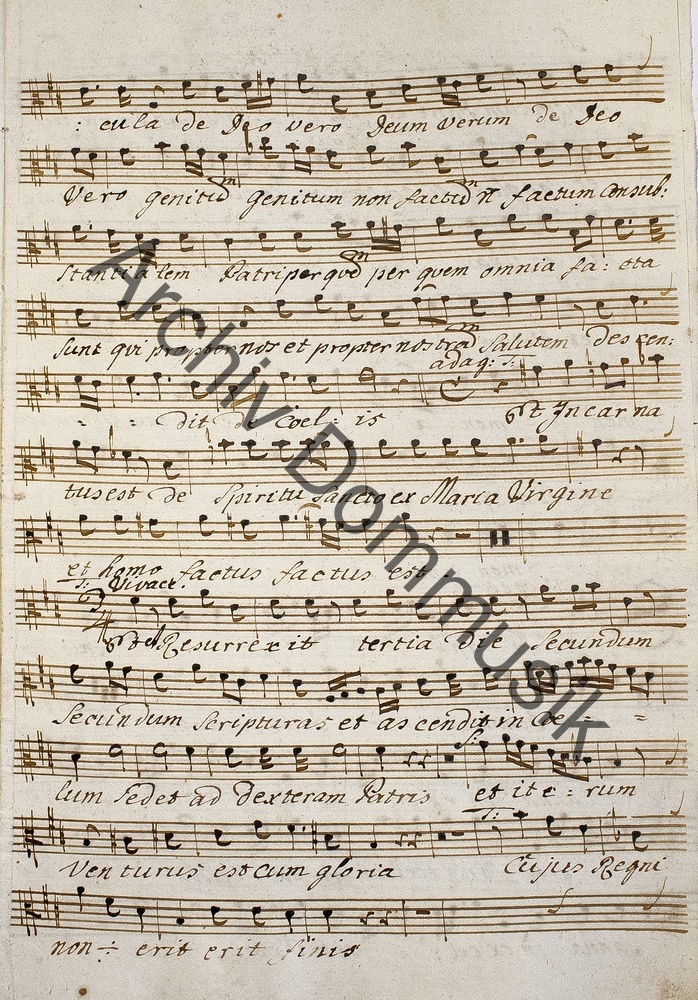 : cula de Deo vero Deum verum de Deo
Vero genitūm genitum non factūm n̄ factum Consub:
stantialem Patri per quēm per quem omnia fa: cta
sunt qui propter nos et propter nostrām Salutem descen:
adag: T:
- : dit de Coel: is Et Incarna
tus est de Spiritu Sancto ex Maria Virgine
et homo factus factus est
T: Vivace.
3/4
Et Resurrexit tertia die Secundum
Secundum Scripturas et ascendit in Coe - =
S:
lum sedet ad dexteram Patris et ite: rum
T:
Venturus est cum gloria Cujus Regni
non ÷ erit erit finis
Archiv Dommusik